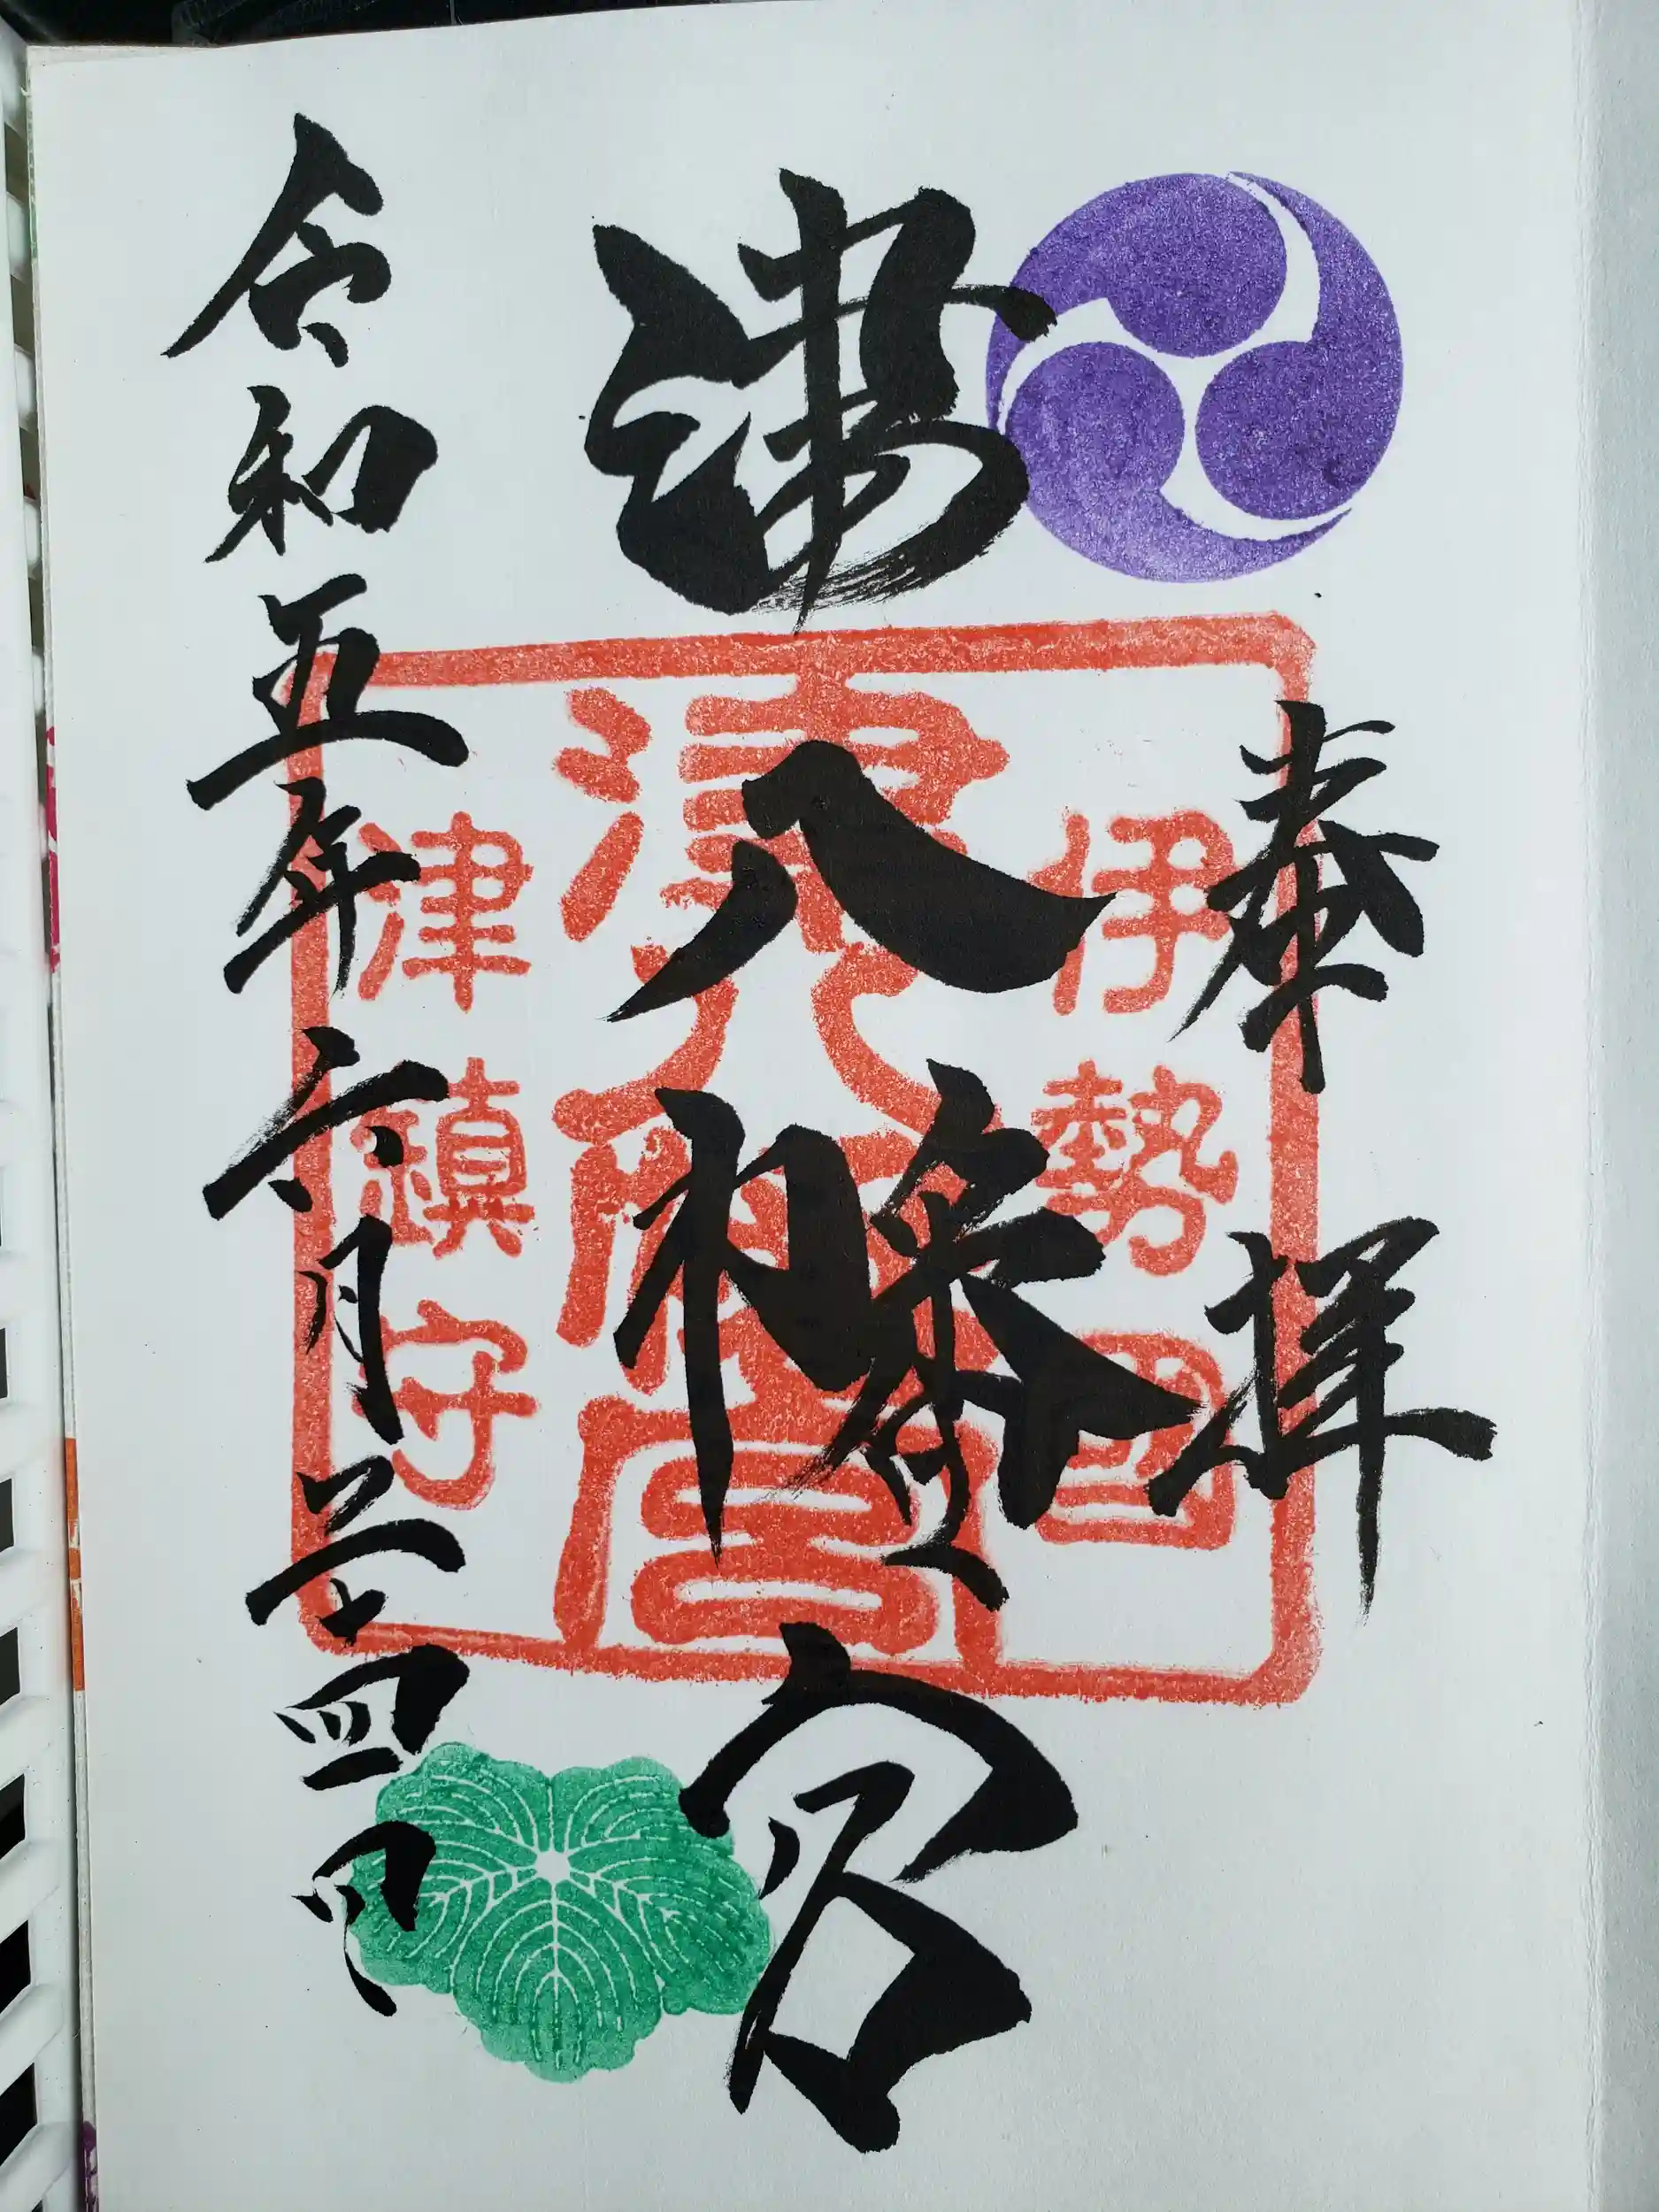 奉拝
津八幡宮
令和五年六月廿四日
伊勢國
津八幡宮
津鎮守